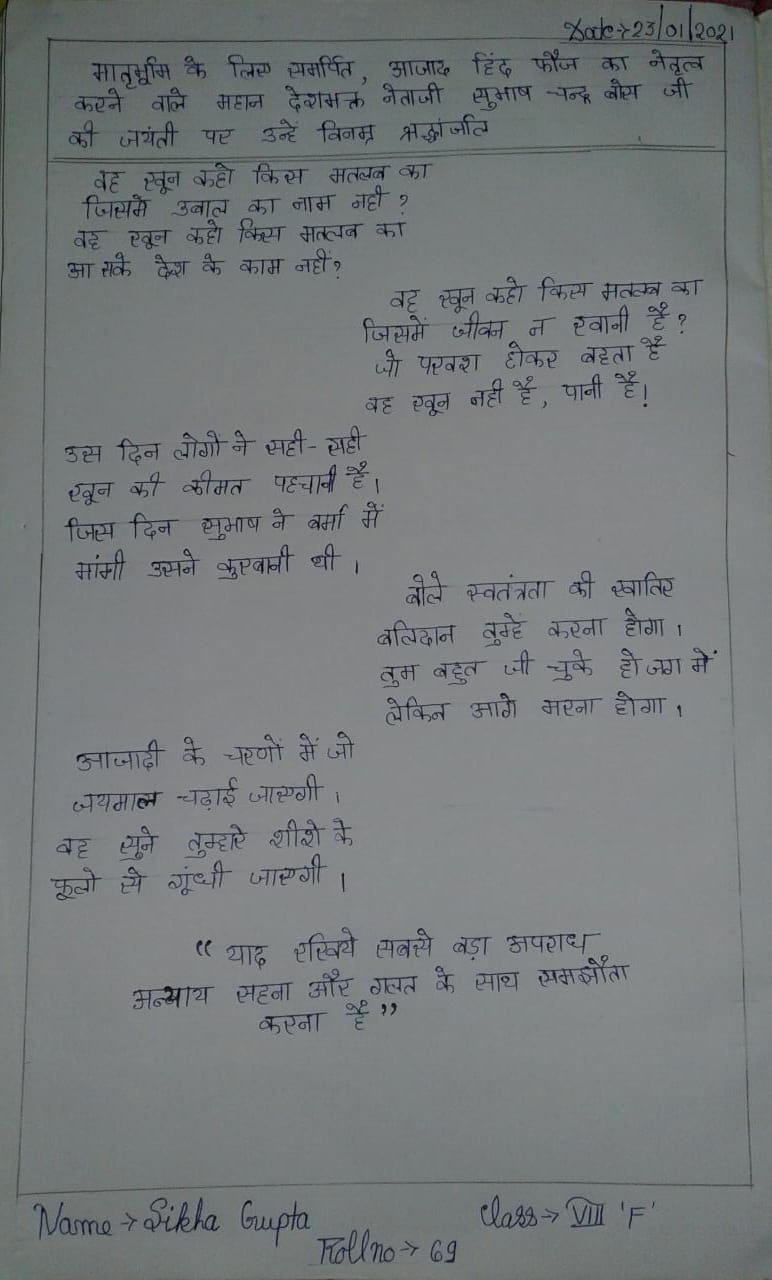 Date→23/01/2021
मातृभूमि के लिए समर्पित, आजाद हिंद फौज का नेतृत्व
करने वाले महान देशभक्त नेताजी सुभाष चन्द्र बोस जी
की जयंती पर उन्हें विनम्र श्रद्धांजलि
वह खून कहो किस मतलब का
जिसमें उबाल का नाम नहीं ?
वह खून कहो किस मतलब का
आ सके देश के काम नहीं?
वह खून कहो किस मतलब का
जिसमें जीवन न रवानी है ?
जो परवश होकर बहता है
वह खून नहीं है, पानी है!
उस दिन लोगों ने सही-सही
खून की कीमत पहचानी है।
जिस दिन सुभाष ने बर्मा में
मांगी उसने कुरबानी थी ।
बोले स्वतंत्रता की खातिर
बलिदान तुम्हें करना होगा ।
तुम बहुत जी चुके हो जग में
लेकिन आगे मरना होगा ।
आजादी के चरणों में जो
जयमाल चढ़ाई जाएगी ।
वह सुने तुम्हारे शीशे के
फूलो से गूंथी जाएगी ।
“ याद रखिये सबसे बड़ा अपराध
अन्याय सहना और गलत के साथ समझौता
करना है ”
Name→ Sikha Gupta
Class→ VIII 'F'
Roll no→ 69